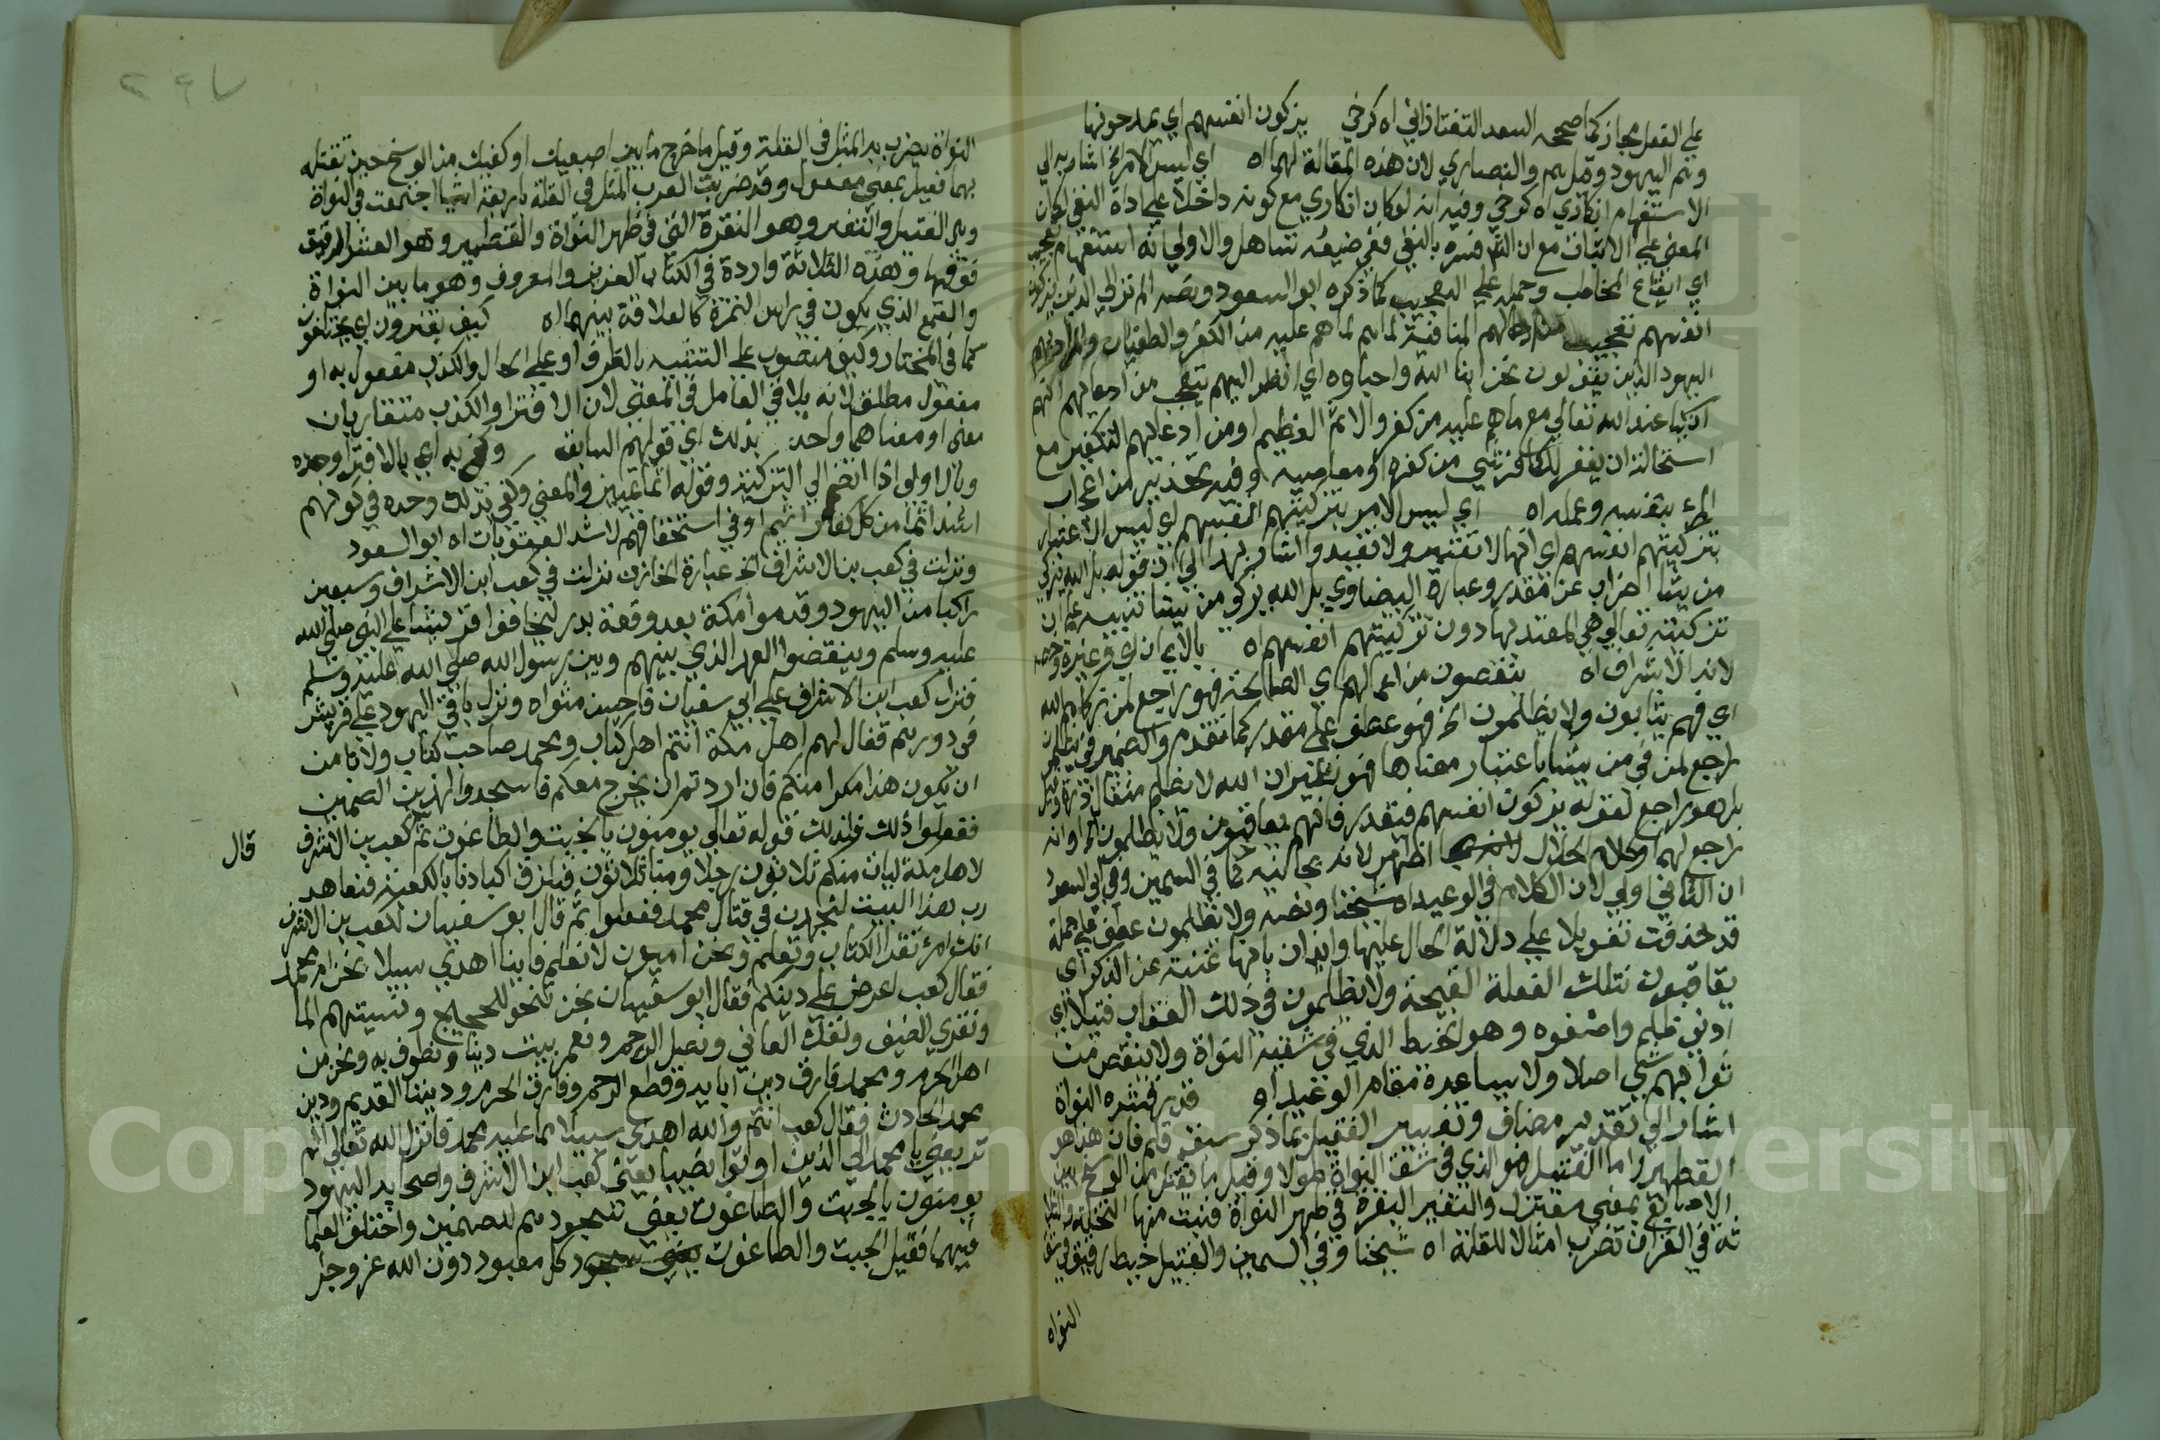 على الفعل مجاز كما صححه السعد التفتازاني اه كرخي يزكون انفسهم اي يمدحونها
وهم اليهود وقيل هم والنصارى لان هذه المقالة لهما اه اي ليس الامر الخ اشار به الي
الاستفهام انكاري اه كرخي وفيه انه لو كان انكاري مع كونه داخلا علي اداة النفي لكان
المعني علي الاثبات مع ان فسره بالنفي ففي ضيعه تساهل والاولي انه استفهام تعجيب
اي ايقاع المخاطب وحمله علي التعجيب كما ذكره ابو السعود ونصه الم تر الي الذين يزكون
انفسهم تعجيب من حالهم المنافية لما هم عليه من الكفر والطغيان والمراد بهم
اليهود الذين يقولون نحن ابنا الله واحباوه اي انظر اليهم تتعجب من ادعائهم انهم
ازكيا عند الله تعالي مع ما هم عليه من كفر والاثم العظيم او من ادعائهم التكفير مع
استحالة ان يغفر للكافر شي من كفره او معاصيه وفيه تحذير من اعجاب
المرء بنفسه وعمله اه اي ليس الامر بتزكيتهم انفسهم اي ليس الاعتبار
بتزكيتهم انفسهم اي انها لا تعتبر ولا تفيد واشار بهذا الي ان قوله بل الله يزكي
من يشا اضراب عن مقدر وعبارة البيضاوي بل الله يزكي من يشا تنبيه علي ان
تزكيته تعالي هي المعتد بها دون تزكيتهم انفسهم اه بالايمان
لانه الاشراف اه ينقصون من اعمالهم اي الصالحة فهو راجع لمن زكاهم الله
اي فهم يثابون ولا يظلمون الخ فهو عطف علي مقدر كما تقدم والضمير في يظلمون
راجع لمن في من يشا باعتبار معناها فهو نظير ان الله لا يظلم مثقال ذرة وقيل
بل هو راجع لقوله يزكون انفسهم فتقديره فانهم يعاقبون ولا يظلمون الخ او انه
راجع لهما وكلام الجلال اظهر لانه بجانبه كما في السمين وفي ابي السعود
ان الثاني اولي لان الكلام في الوعيد اه شيخنا ونصه ولا يظلمون عطف علي جملة
قد حذفت تعويلا علي دلالة الحال عليها وايذان بانها غنية عن الذكر اي
يعاقبون بتلك الفعلة القبيحة ولا يظلمون في ذلك العقاب فتيلا اي
ادني ظلم واصغره وهو الخيط الذي في شق النواة ولا ينقص من
ثوابهم شي اصلا ولا يساعده مقام الوعيد اه قدر قشره النواة
اشار الي تقدير مضاف وتفسير الفتيل بما ذكر سبق قلم فان هذا هو
القطمير واما الفتيل هو الذي في شق النواة طولا وقيل ما تفتل من الوسخ بين
الاصابع بمعني مفتول والنقير النقرة في ظهر النواة فنبت منها النخلة
ثة في القران تضرب امثالا للقلة اه شيخنا وفي السمين والفتيل خيط رقيق في شق
النواه
النواة يضرب به المثل في القلة وقيل ما خرج ما بين اصبعيك او كفيك من الوسخ حين تفتله
بهما فعيل بمعني مفعول وقد ضربت العرب المثل في القلة باربعة اشيا اجتمعت في النواة
وهي الفتيل والنقير وهو النقرة التي في ظهر النواة والقطمير وهو القشر الرقيق
فوقها وهذه الثلاثة واردة في الكتاب العزيز والمعروف وهو ما بين النواة
والقمع الذي يكون في راس التمرة كالعلاقة بينهما اه كيف يفترون اي يختلقون
كما في المختار وكيف منصوب علي التشبيه بالظرف او علي الحال والكذب مفعول به او
مفعول مطلق لانه يلاقي العامل في المعني لان الافترا والكذب متقاربان
معني او معناهما واحد بذلك اي قولهم السابق وكفي به اي بالافترا وحده
وبالاولي اذا انضم الي التزكية وقوله اثما تمييز والمعني وكفي بذلك وحده في كونهم
اشد اثما من كل كفار اثيم او في استحقاقهم لاشد العقوبات اه ابو السعود
ونزلت في كعب بن الاشراف الخ عبارة الخازن نزلت في كعب ابن الاشراف وسبعين
راكبا من اليهود وقدموا مكة بعد وقعة بدر ليحالفوا قريشا علي النبي صلي الله
عليه وسلم وينقضوا العهد الذي بينهم وبين رسول الله صلي الله عليه وسلم
فنزل كعب ابن الاشراف علي ابي سفيان فاحسن مثواه ونزل باقي اليهود علي قريش
في دورهم فقال لهم اهل مكة انتم اهل كتاب ومحمد صاحب كتاب ولا نامن
ان يكون هذا مكرا منكم فان اردتم ان نخرج معكم فاسجدوا لهذين الصنمين
ففعلوا ذلك فذلك قوله تعالي يومنون بالجبت والطاغوت ثم كعب بن الاشرف
قال
لاهل مكة ليات منكم ثلاثون رجلا ومنا ثلاثون فنلزق اكبادنا بالكعبة فنعاهد
رب هذا البيت لنجهدن في قتال محمد ففعلوا ثم قال ابو سفيان لكعب بن الاشرف
انك امرؤ تقرا الكتاب وتعلم ونحن اميون لا نعلم فاينا اهدي سبيلا نحن ام محمد
فقال كعب اعرض علي دينكم فقال ابو سفيان نحن ننحر للحجيج ونسقيهم الما
ونقري الضيف ونفك العاني ونصل الرحم ونعمر بيت ربنا ونطوف به ونحن من
اهل الحرم ومحمد فارق دين ابايه وقطع الرحم وفارق الحرم وديننا القديم ودين
محمد الحادث فقال كعب انتم والله اهدي سبيلا مما عليه محمد فانزل الله تعالي الم
تر يعني يا محمد الي الذين اوتوا نصيبا يعني كعب ابن الاشرف واصحابه اليهود
يومنون بالجبت والطاغوت يعني سجودهم للصنمين واختلف العلما
فيهما فقيل الجبت والطاغوت كل معبود دون الله عز وجل